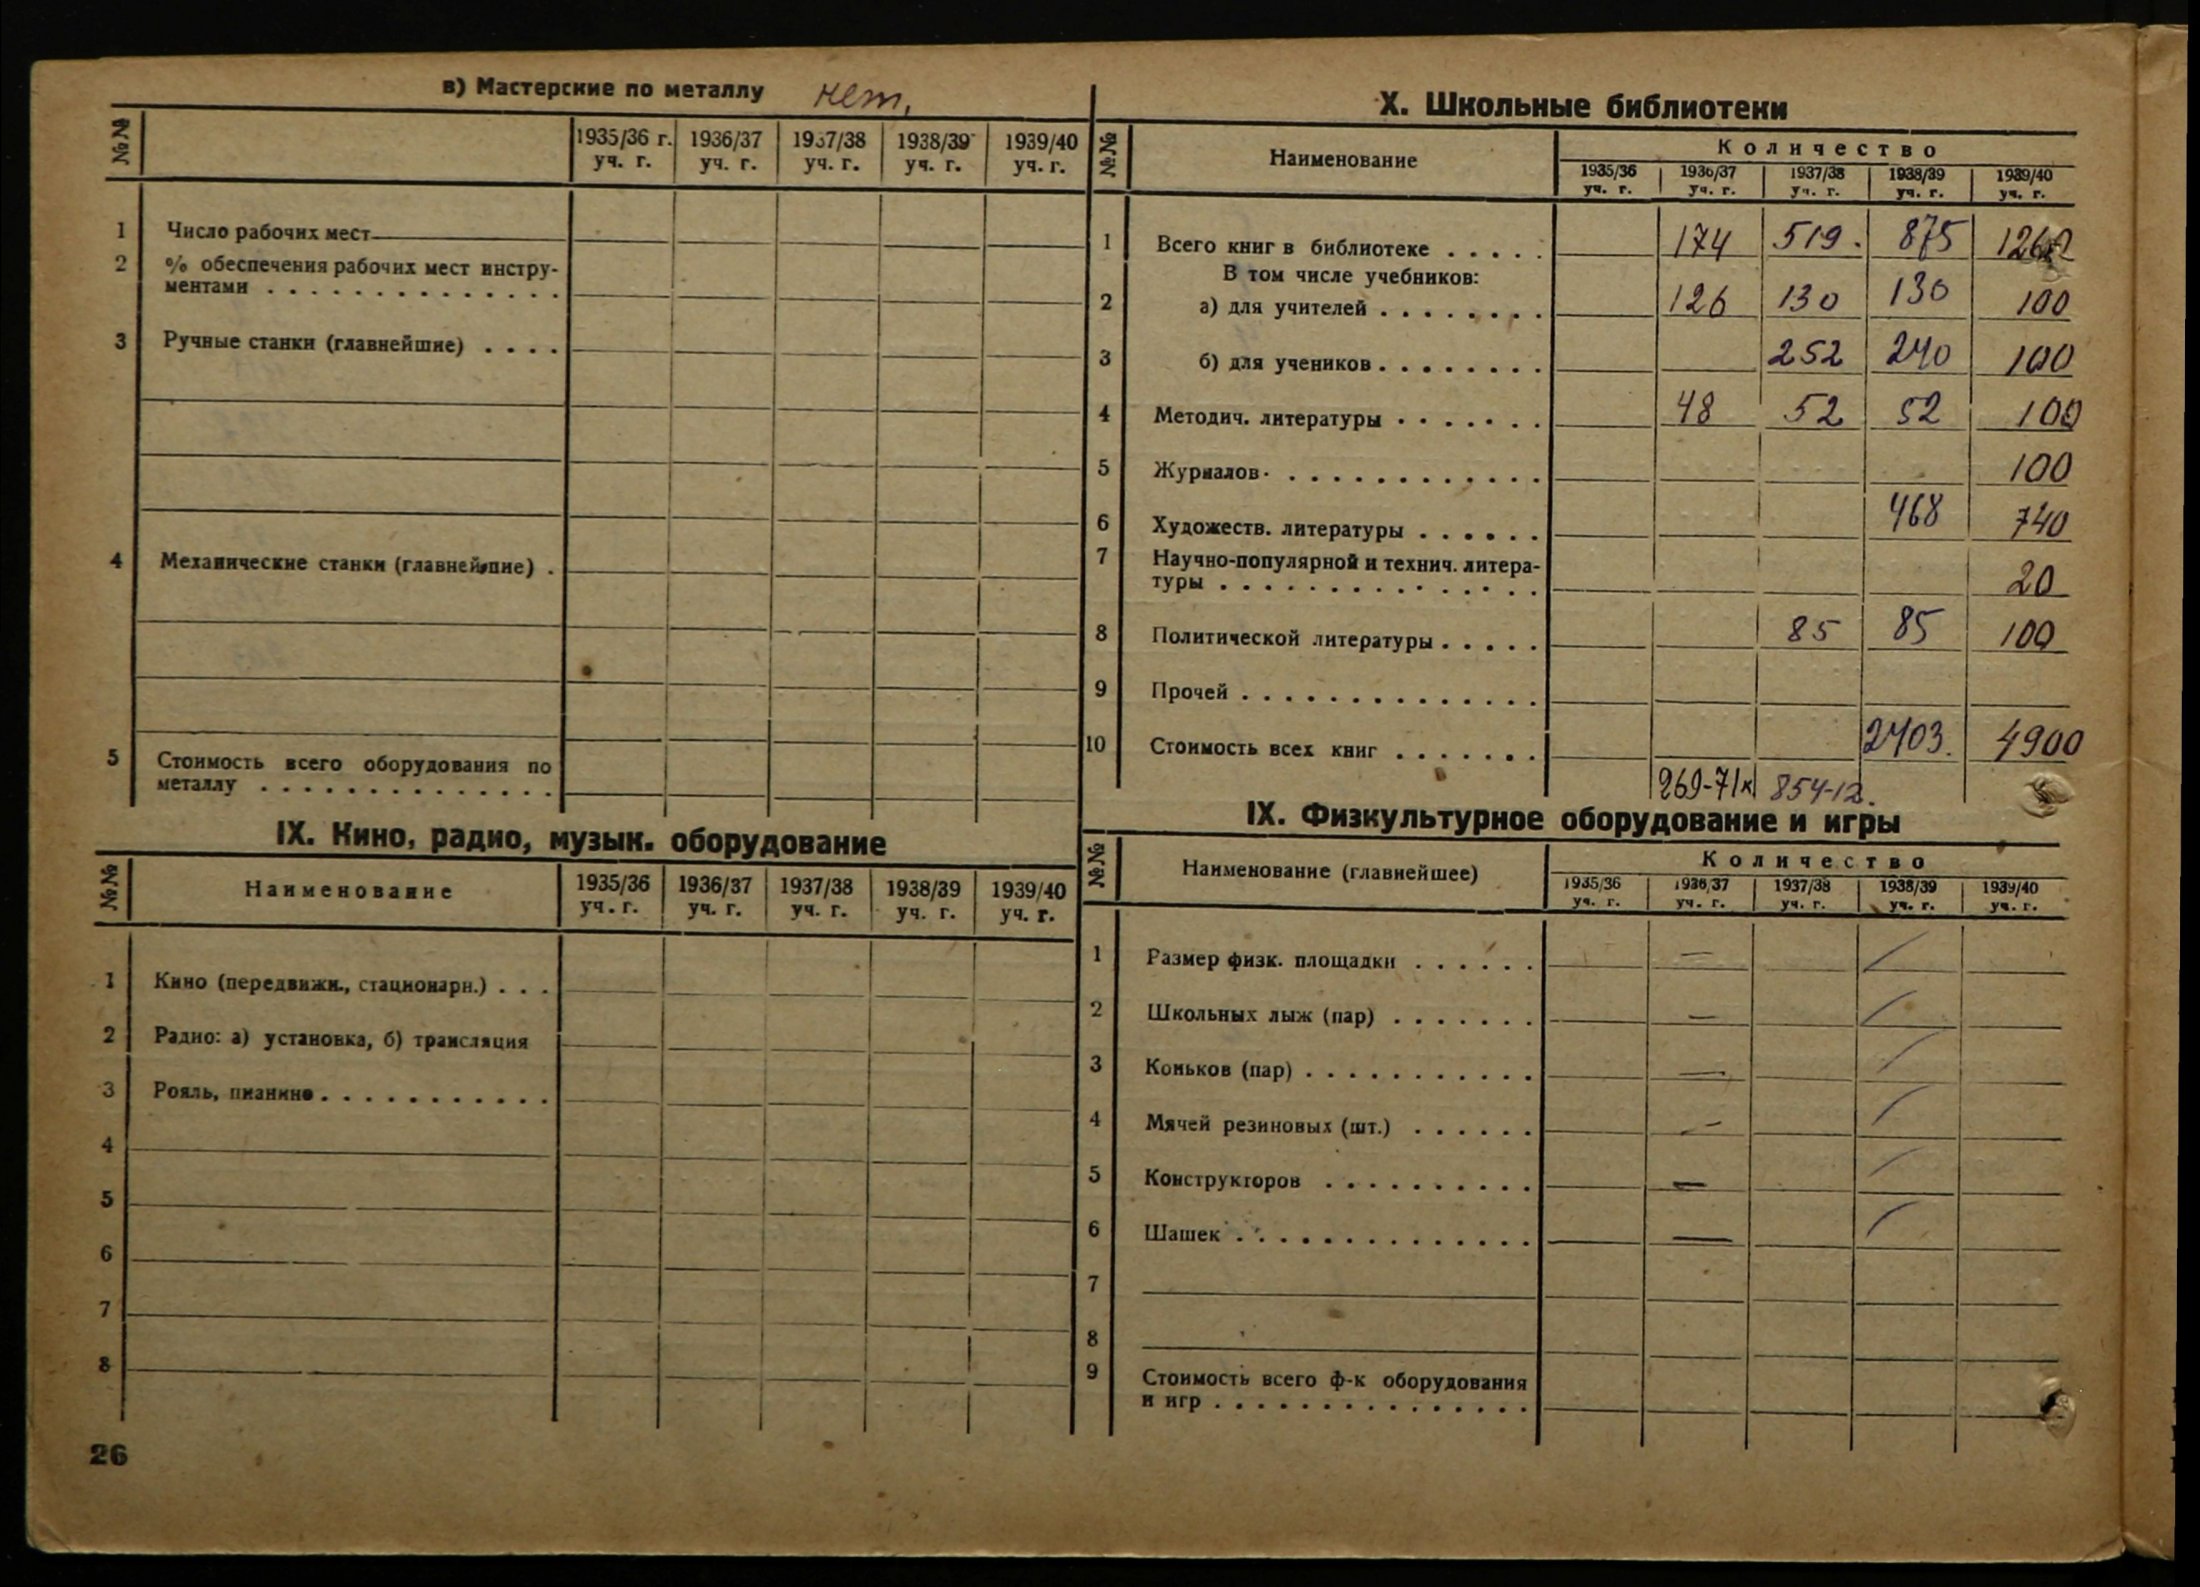 в) Мастерские по металлу нет,
№№ 1935/36 г. 1936/37 1937/38 1938/39 1939/40
уч. г. уч. г. уч. г. уч. г. уч. г.
1 Число рабочих мест
2 % обеспечения рабочих мест инстру-
ментами . . . . . . . . . . . . . .
3 Ручные станки (главнейшие) . . . .
4 Механические станки (главнейшие) .
5 Стоимость всего оборудования по
металлу . . . . . . . . . . . . . .
IX. Кино, радио, музык. оборудование
№№ Наименование 1935/36 1936/37 1937/38 1938/39 1939/40
уч. г. уч. г. уч. г. уч. г. уч. г.
1 Кино (передвижн., стационарн.) . . .
2 Радио: а) установка, б) трансляция
3 Рояль, пианино . . . . . . . . . . .
4
5
6
7
8
26
X. Школьные библиотеки
№№ Наименование Количество
1935/36 1936/37 1937/38 1938/39 1939/40
уч. г. уч. г. уч. г. уч. г. уч. г.
1 Всего книг в библиотеке . . . . . 174 519. 875 1260
В том числе учебников:
2 а) для учителей . . . . . . . . 126 130 130 100
3 б) для учеников . . . . . . . . 252 240 100
4 Методич. литературы . . . . . . . 48 52 52 100
5 Журналов . . . . . . . . . . . . . 100
6 Художеств. литературы . . . . . . 468 740
7 Научно-популярной и технич. литера-
туры . . . . . . . . . . . . . . . 20
8 Политической литературы . . . . . 85 85 100
9 Прочей . . . . . . . . . . . . . .
10 Стоимость всех книг . . . . . . . 2403. 4900
269-71к 854-12.
IX. Физкультурное оборудование и игры
№№ Наименование (главнейшее) Количество
1935/36 1936/37 1937/38 1938/39 1939/40
уч. г. уч. г. уч. г. уч. г. уч. г.
1 Размер физк. площадки . . . . . . — /
2 Школьных лыж (пар) . . . . . . . — /
3 Коньков (пар) . . . . . . . . . . . — /
4 Мячей резиновых (шт.) . . . . . . — /
5 Конструкторов . . . . . . . . . . — /
6 Шашек . . . . . . . . . . . . . . — /
7
8
9 Стоимость всего ф-к оборудования
и игр . . . . . . . . . . . . . . .